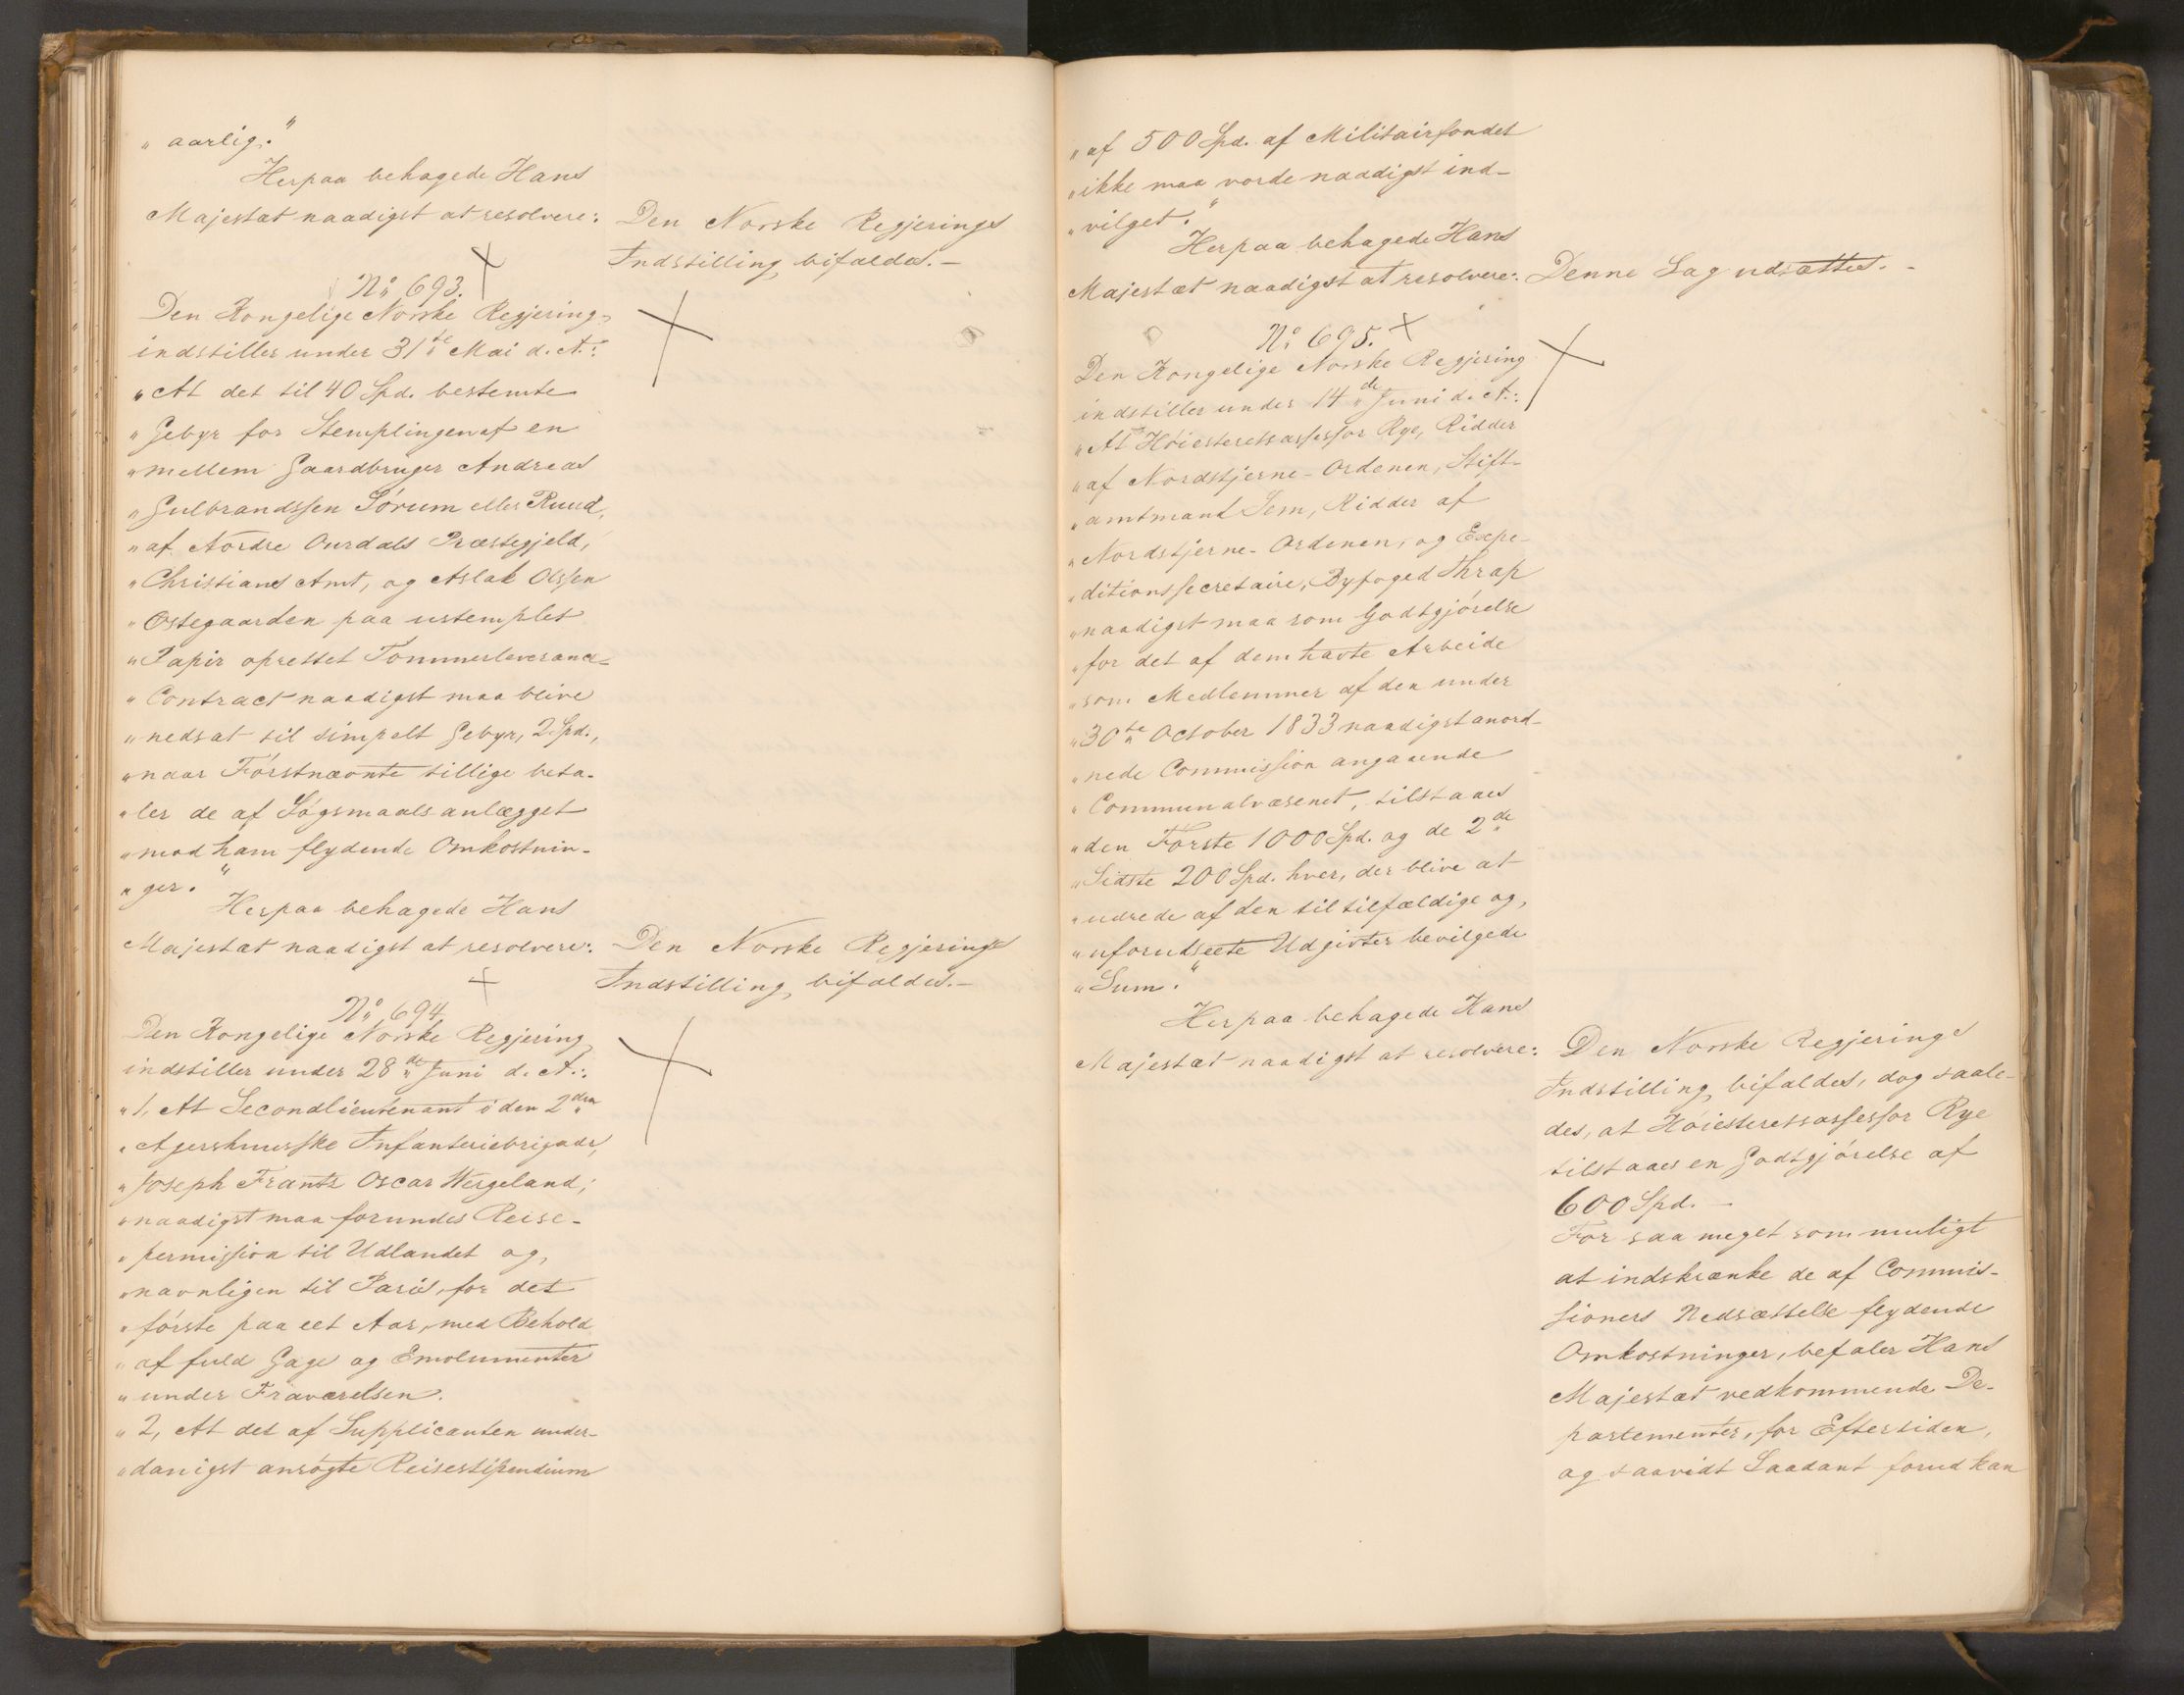 „aarlig."
Herpaa behagede Hans
Majestæt naadigst at resolvere:
Den Norske Regjerings
Indstilling bifaldes.-
No 693.
Den Kongelige Norske Regjering
indstiller under 31te Mai d. A.:
„At det til 40 Spd. bestemte
„Gebyr for Stemplingen af en
„mellem Gaardbruger Andreas
„Gulbrandssen Sørum eller Ruud,
„af Nordre Ourdals Præstegjeld,
„Christians Amt, og Aslak Olssen
„Ostegaarden paa ustemplet
„Papir oprettet Tømmerleverance-
„Contract naadigst maa blive
„nedsat til simpelt Gebyr, 2 Spd.,
„naar Førstnævnte tillige beta-
„ler de af Søgsmaals anlægget
„mod ham flydende Omkostnin-
„ger."
Herpaa behagede Hans
Majestæt naadigst at resolvere:
Den Norske Regjerings
Indstilling bifaldes.-
No 694.
Den Kongelige Norske Regjering
indstiller under 28de Juni d. A.:
„1, At Secondlieutenant i den 2den
„Agershuusske Infanteriebrigade,
„Joseph Frantz Oscar Wergeland,
„naadigst maa forundes Reise-
„permission til Udlandet og,
„navnligen til Paris, for det
„første paa eet Aar, med Behold
„af fuld Gage og Emolumenter
„under Fraværelsen.
„2, At det af Supplicanten under-
„danigst ansøgte Reisestipendium
„af 500 Spd. af Militairfondet
„ikke maa vorde naadigst ind-
„vilget."
Herpaa behagede Hans
Majestæt naadigst at resolvere:
Denne Sag udsættes.-
No 695.
Den Kongelige Norske Regjering
indstiller under 14de Juni d. A.:
„At Høiesteretsassessor Rye, Ridder
„af Nordstjerne-Ordenen, Stift-
„amtmand Sem, Ridder af
„Nordstjerne-Ordenen, og Expe-
„ditionssecretaire, Byfoged Thrap
„naadigst maa som Godtgjørelse
„for det af dem havte Arbeide
„som Medlemmer af den under
„30te October 1833 naadigst anord-
„nede Commission angaaende
„Communalvæsenet, tilstaaes
„den Første 1000 Spd. og de 2de
„Sidste 200 Spd. hver, der blive at
„udrede af den til tilfældige og,
„uforudseete Udgivter bevilgede
„Sum."
Herpaa behagede Hans
Majestæt naadigst at resolvere:
Den Norske Regjerings
Indstilling bifaldes, dog saale-
des, at Høiesteretsassessor Rye
tilstaaes en Godtgjørelse af
600 Spd.-
For saa meget som muligt
at indskrænke de af Commis-
sioners Nedsættelse flydende
Omkostninger, befaler Hans
Majestæt vedkommende De-
partementer, for Eftertiden,
og saavidt Saadant forud kan